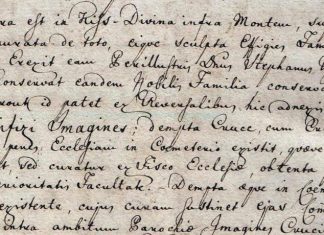 ra est in Kiss-Divina infra Montem, su
murata de toto, eique sculpta Effigies Fam
Erexit eam Perillustris Dnus Stephanus
Conservat eandem Nobilis Familia, conservo
prout id patet ex Reversalibus, hic adnexis
ifixi Imagines; dempta Cruce, cum
pend. Ecclesiam in Coemeterio existit, quæve
t, sed curatur ex Fisco Ecclesiæ obtenta
erioritatis Facultate. Dempta æque in Coe
existente, cujus curam sustinet ejas Com
intra ambitum Parochiæ Imagines Cruci